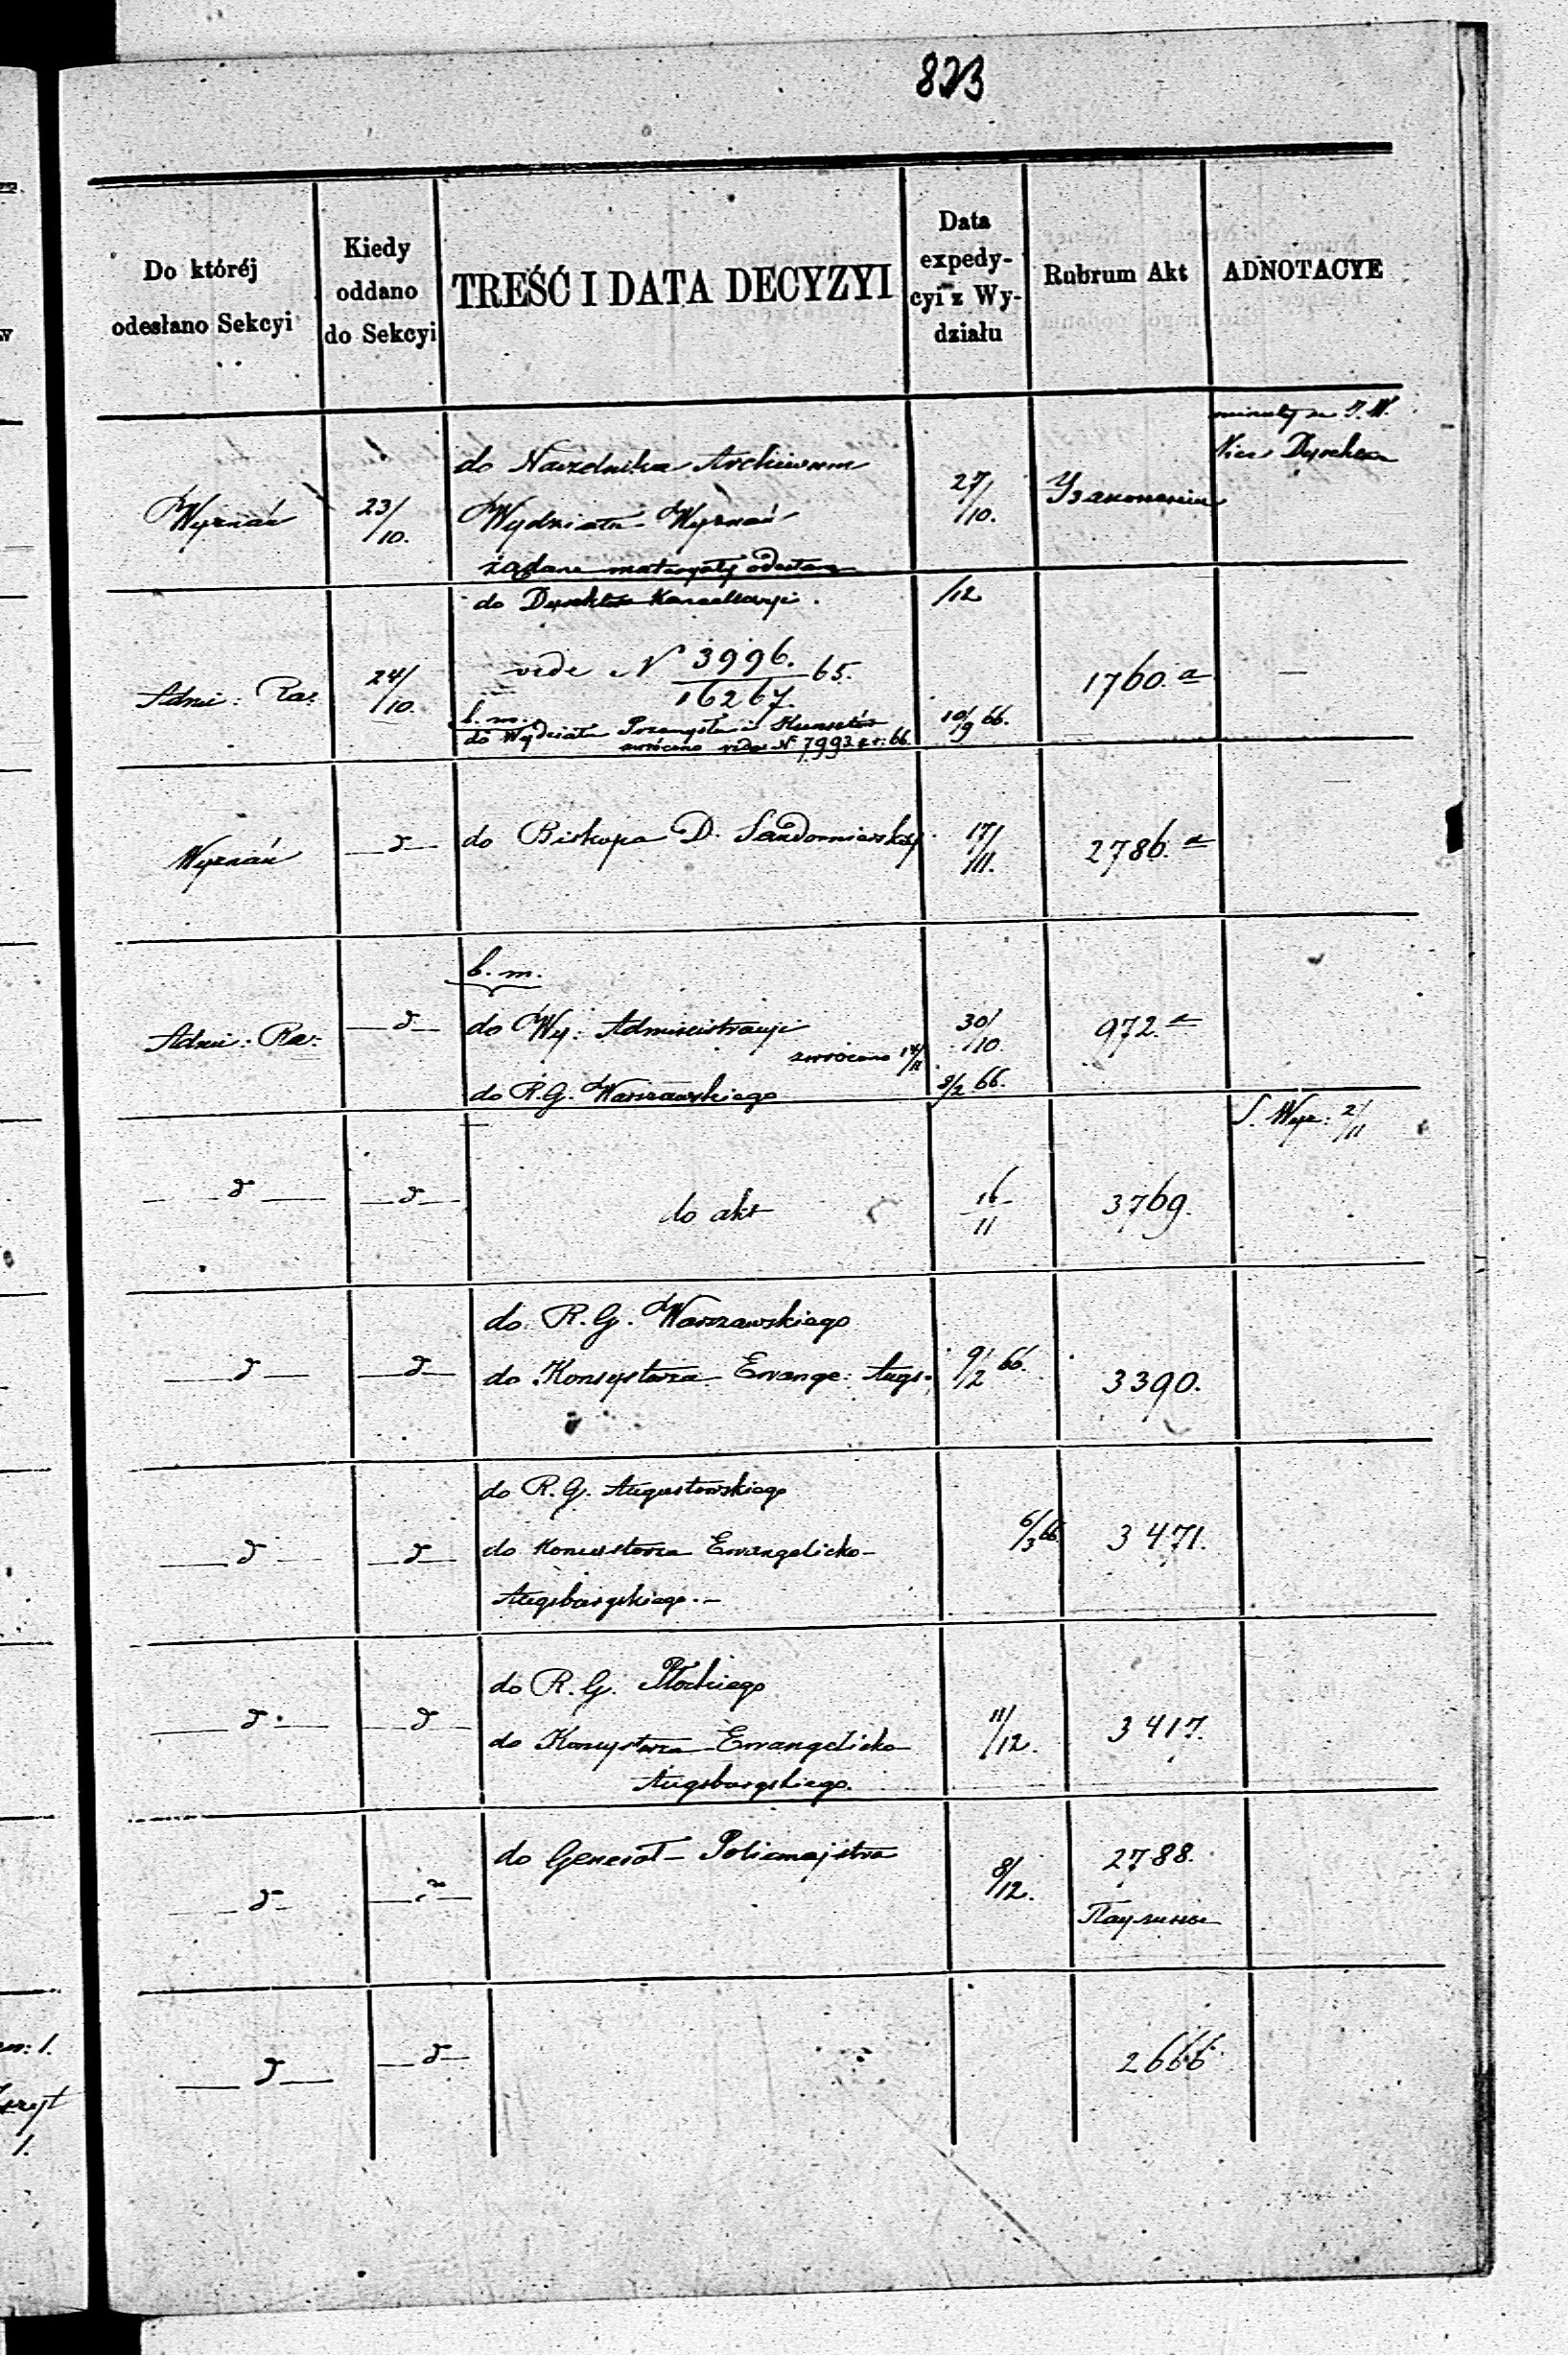 823
Do któréj
odesłano Sekcyi
Kiedy
oddano
do Sekcyi
TREŚĆ I DATA DECYZYI
Data
expedy-
cyi z Wy-
działu
Rubrum Akt
ADNOTACYE
Wyznań
23/10.
do Naczelnika Archiwum
Wydziału Wyznań
żądane materyały odesłano
27/10.
Узаконенiи
minuty u J. W.
Vice Dyrektora
Adm: Ra:
24/10.
do Dyrektora Kancellaryi.
/12
vide N 3996./16267. 65.
b. m.
do Wydziału Przemysłu i Kunsztów
zwrócono vide N 7993 z r. 66.
10/9 66.
1760.a
Wyznań
— d —
do Biskupa D. Sandomierskiej
17/11.
2786.a
Adm: Ra:
— d —
b. m.
do Wy: Administracyi
zwrócono 14/11
do R.G. Warszawskiego
30/10.
8/2 66.
972.a
— d —
— d —
do akt
16/11
3769.
S. Wyz: 2/11
— d —
— d —
do R.G. Warszawskiego
do Konsystorza Ewange: Augs:
9/2 66.
3390.
— d —
— d —
do R.G. Augustowskiego
do Konsystorza Ewangelicko-
Augsburgskiego.—
6/3 66
3471.
— d —
— d —
do R.G. Płockiego
do Konsystorza Ewangelicko
Augsburgskiego.
11/12.
3417.
— d —
— „ —
do Generał-Policmajstra
8/12.
2788.
Паулины
— d —
— d —
2666